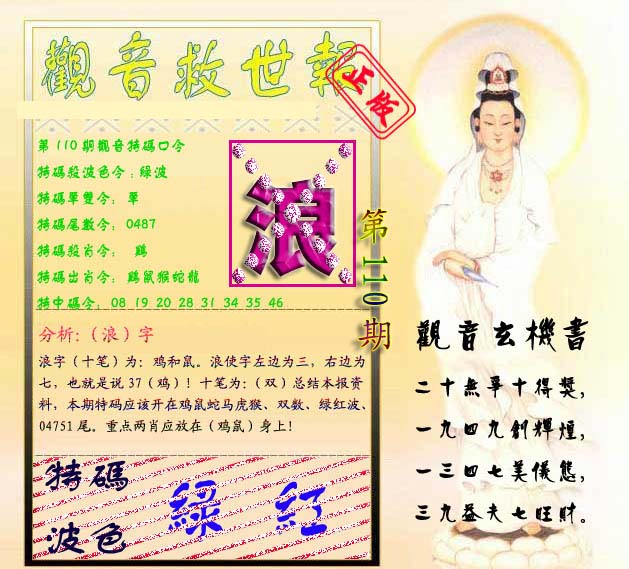 觀音救世報
正版
第110期觀音特碼口令
特碼殺波色令：綠波
特碼單雙令： 單
特碼尾數令： 0487
特碼殺肖令： 鷄
特碼出肖令： 鷄鼠猴蛇龍
特中碼令： 08 19 20 28 31 34 35 46
浪
第110期
分析:（浪）字
浪字（十笔）为：鸡和鼠。浪使字左边为三，右边为
七，也就是说 37（鸡）！十笔为:（双）总结本报资
料，本期特码应该开在鸡鼠蛇马虎猴、双数、绿红波、
04751 尾。重点两肖应放在（鸡鼠）身上！
特碼
波色
綠 紅
觀音玄機書
二十無爭十得獎，
一九四九創輝煌，
一三四七美儀態，
三九益夫七旺財。